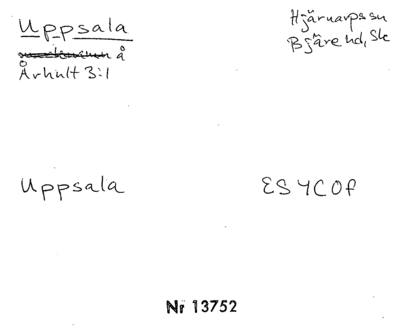 Uppsala
å
Århult 3:1
Hjärnarps sn
Bjäre hd, Sk
Uppsala
ESYCOf
Nr 13752